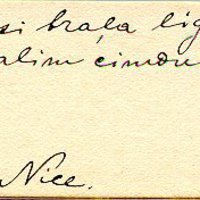 si braļa lig
alim cimdu
Nice.